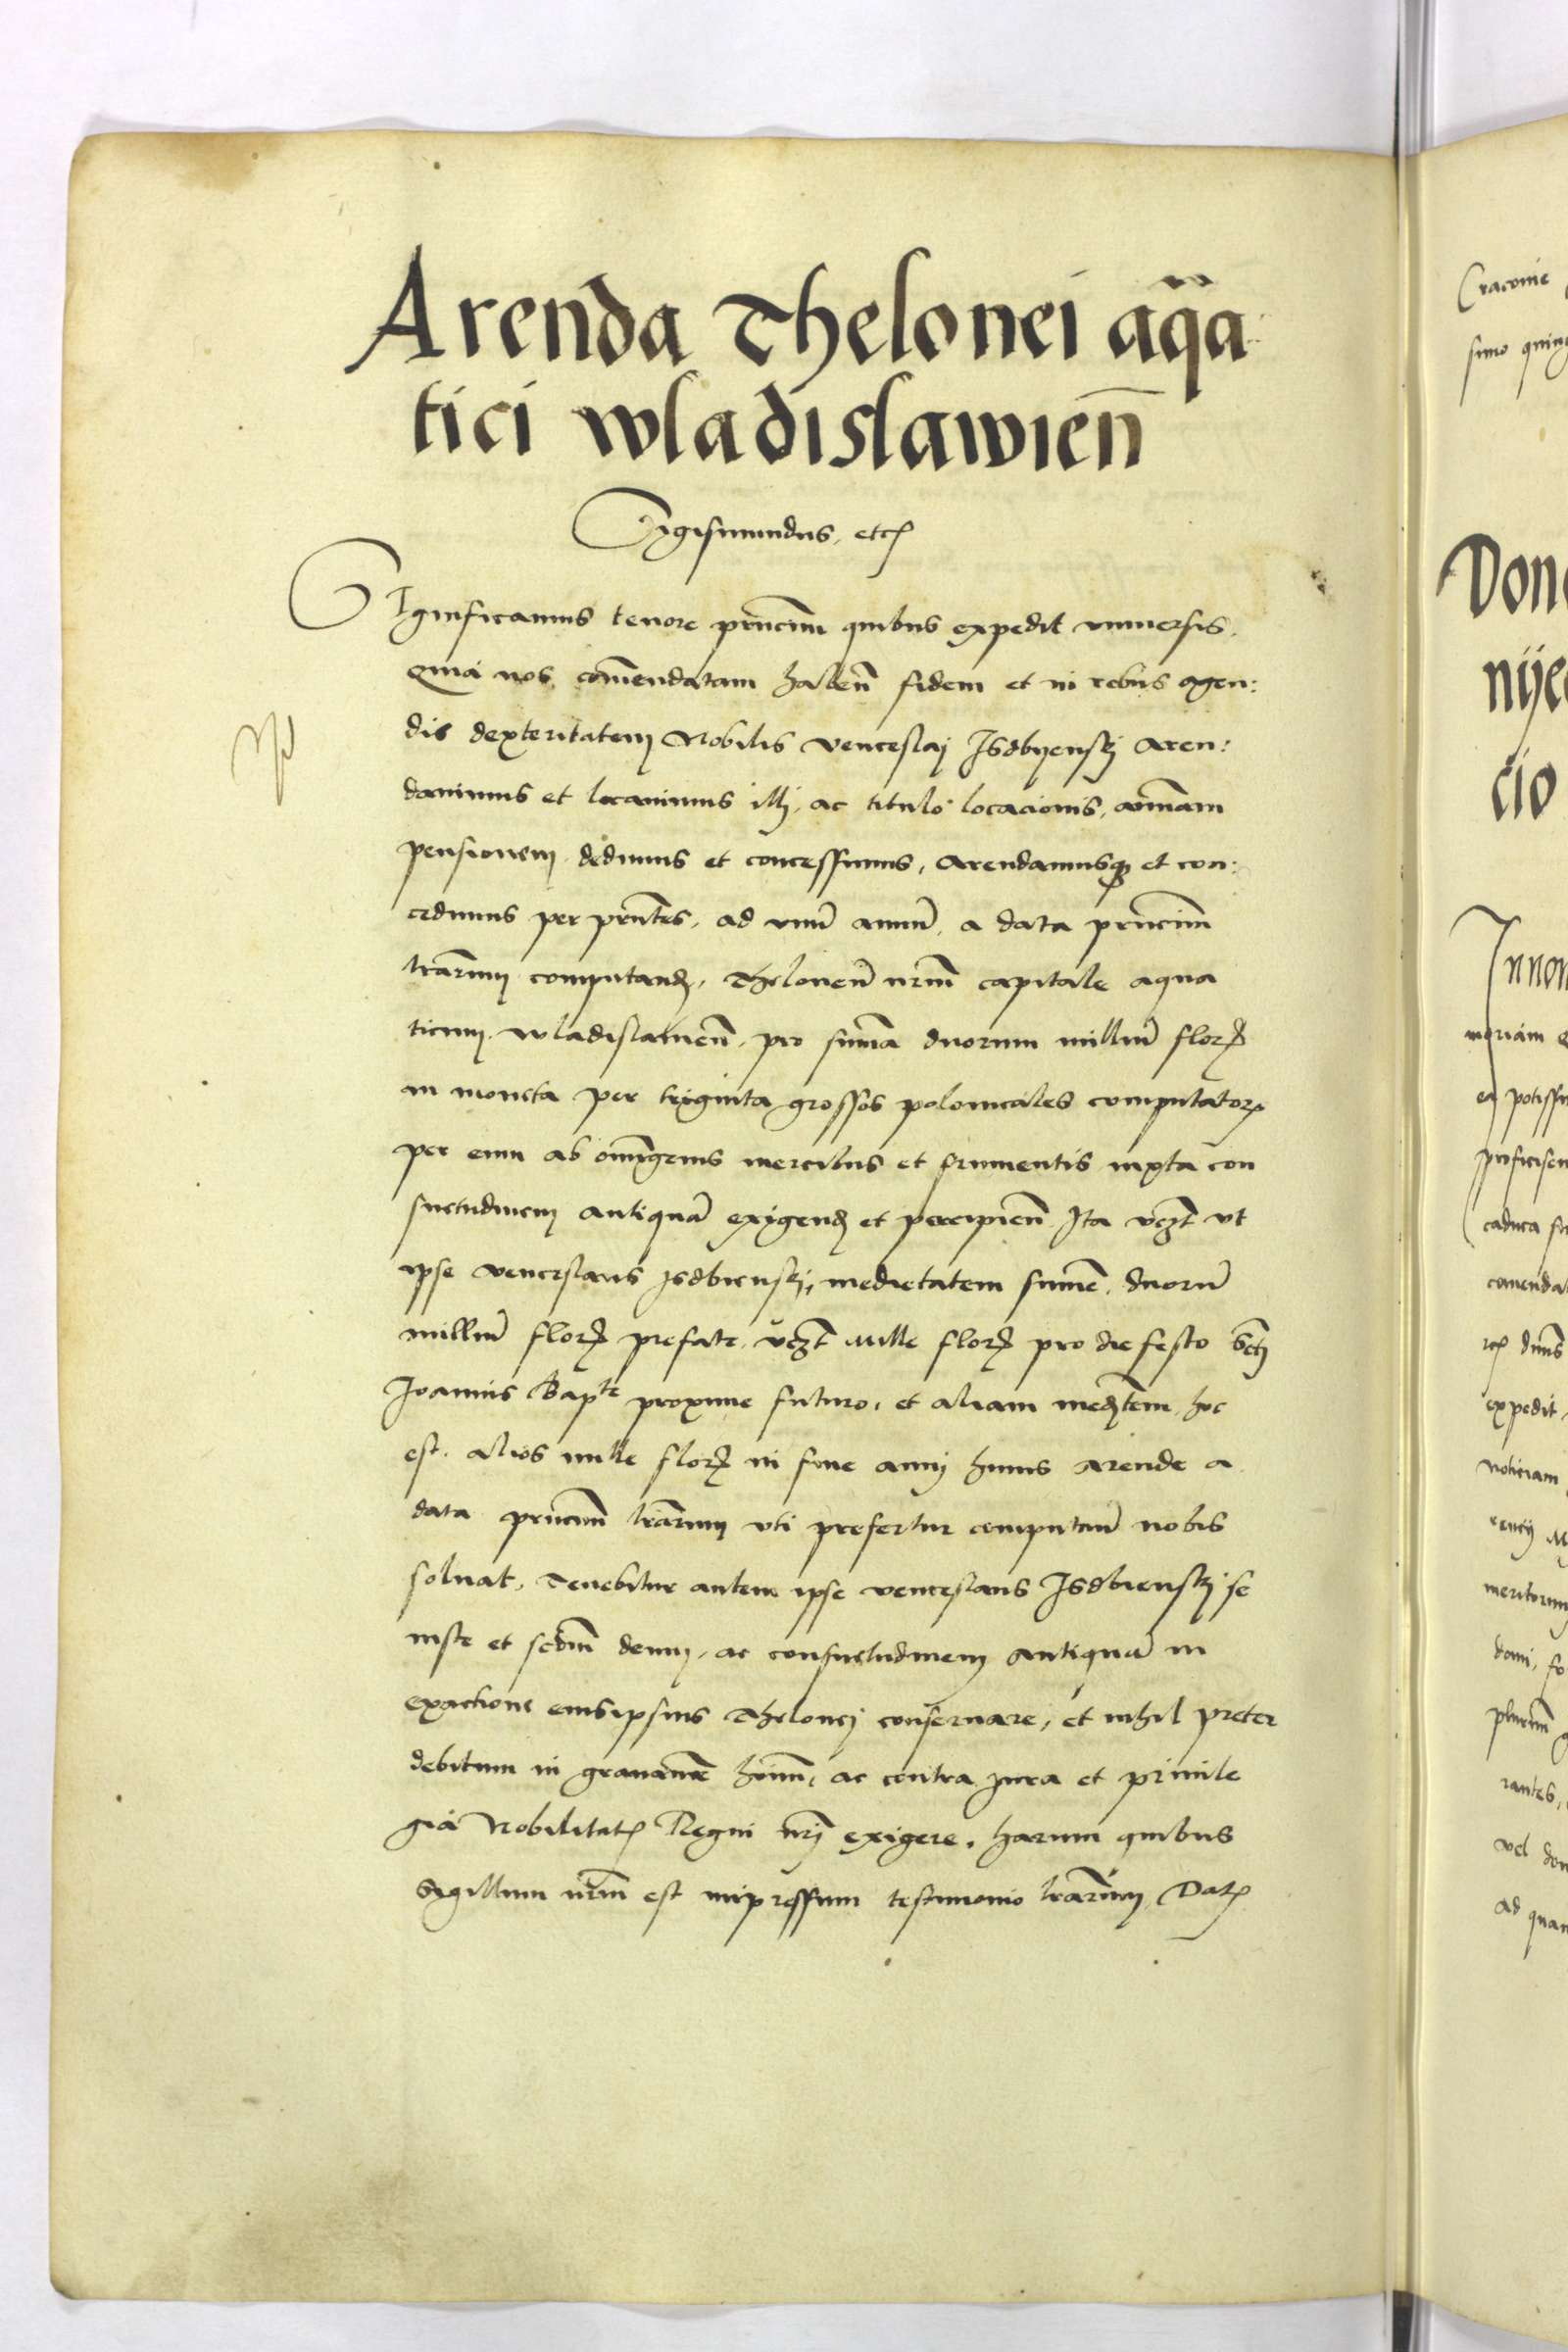 Arenda Thelonei aq̃a
tici wladislawien̄
Sigismundus, etc
SIgnificamus tenore pn̄cium quibus expedit vniuersis,
Quia nos com̄endatam haben̄ fidem et in rebus agen:
dis dexteritatem Nobilis venceslaj Isdbyenskj aren:
dauimus et locauimus illj, ac titulo locacionis, annuam
pensionem dedimus et concessimus, Arendamusqȝ et con:
cedimus per pn̄tes, ad vnū annū, a data pn̄cium
lr̄arum computand, Thelonēū nr̄m capitale aqua
ticum wladislauien̄, pro sum̄a duorum milliū flor
in moneta per triginta grossos polonicales computator
per eum ab omnigenis mercibus et frumentis iuxta con
suetudinem antiquā exigend et percipien̄ Ita vczt̄ vt
ipse venceslaus Isdbienskj, medietatem sum̄e, duorū
milliū flor prefate, vczt̄ mille flor pro die festo scti
Joannis Bapte proxime futuro, et aliam medtem hoc
est alios mille flor in fine annj huius arende a
data pn̄cium lr̄arum vti prefertur computan̄ nobis
soluat, Tenebitur autem ipse venceslaus Isdbienskj se
iuste et scdm̄ deum, ac consuetudinem antiquā in
exactione eiusipsius Thelonej conseruare, et nihil preter
debitum in grauamē hoīm, ac contra iura et priuile
gia Nobilitat Regni nr̄j exigere, harum quibus
Sigillum nr̄m est impressum testimonio lr̄arum Dat
Cracouie
simo quing
Don
nije
cio
Innon
moriam
ea potissi
proficisen
caduca
comendat
expedit
noticiam
meritorum
plurim
rantes,
vel don
ad quam